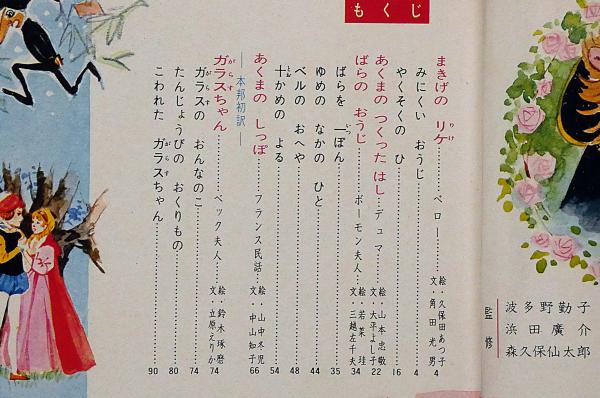 もくじ
まきげの リケ……ペロー……絵・久保田あつ子 文・角田光男 4
みにくい おうじ……4
やくそくの ひ……16
あくまの つくった はし……デュマ……絵・山本忠敬 文・大平よし子 22
ばらの おうじ……ボーモン夫人……絵・若菜珪 文・三越左千夫 34
ばらを 一ぽん……35
ゆめの なかの ひと……44
ベルの おへや……48
十かめの よる……54
あくまの しっぽ……フランス民話……絵・山中冬児 文・中山知子 66
―本邦初訳―
ガラスちゃん……ベック夫人……絵・鈴木琢磨 文・立原えりか 74
ガラスの おんなのこ……74
たんじょうびの おくりもの……80
こわれた ガラスちゃん……90
監修
波多野勤子
浜田廣介
森久保仙太郎